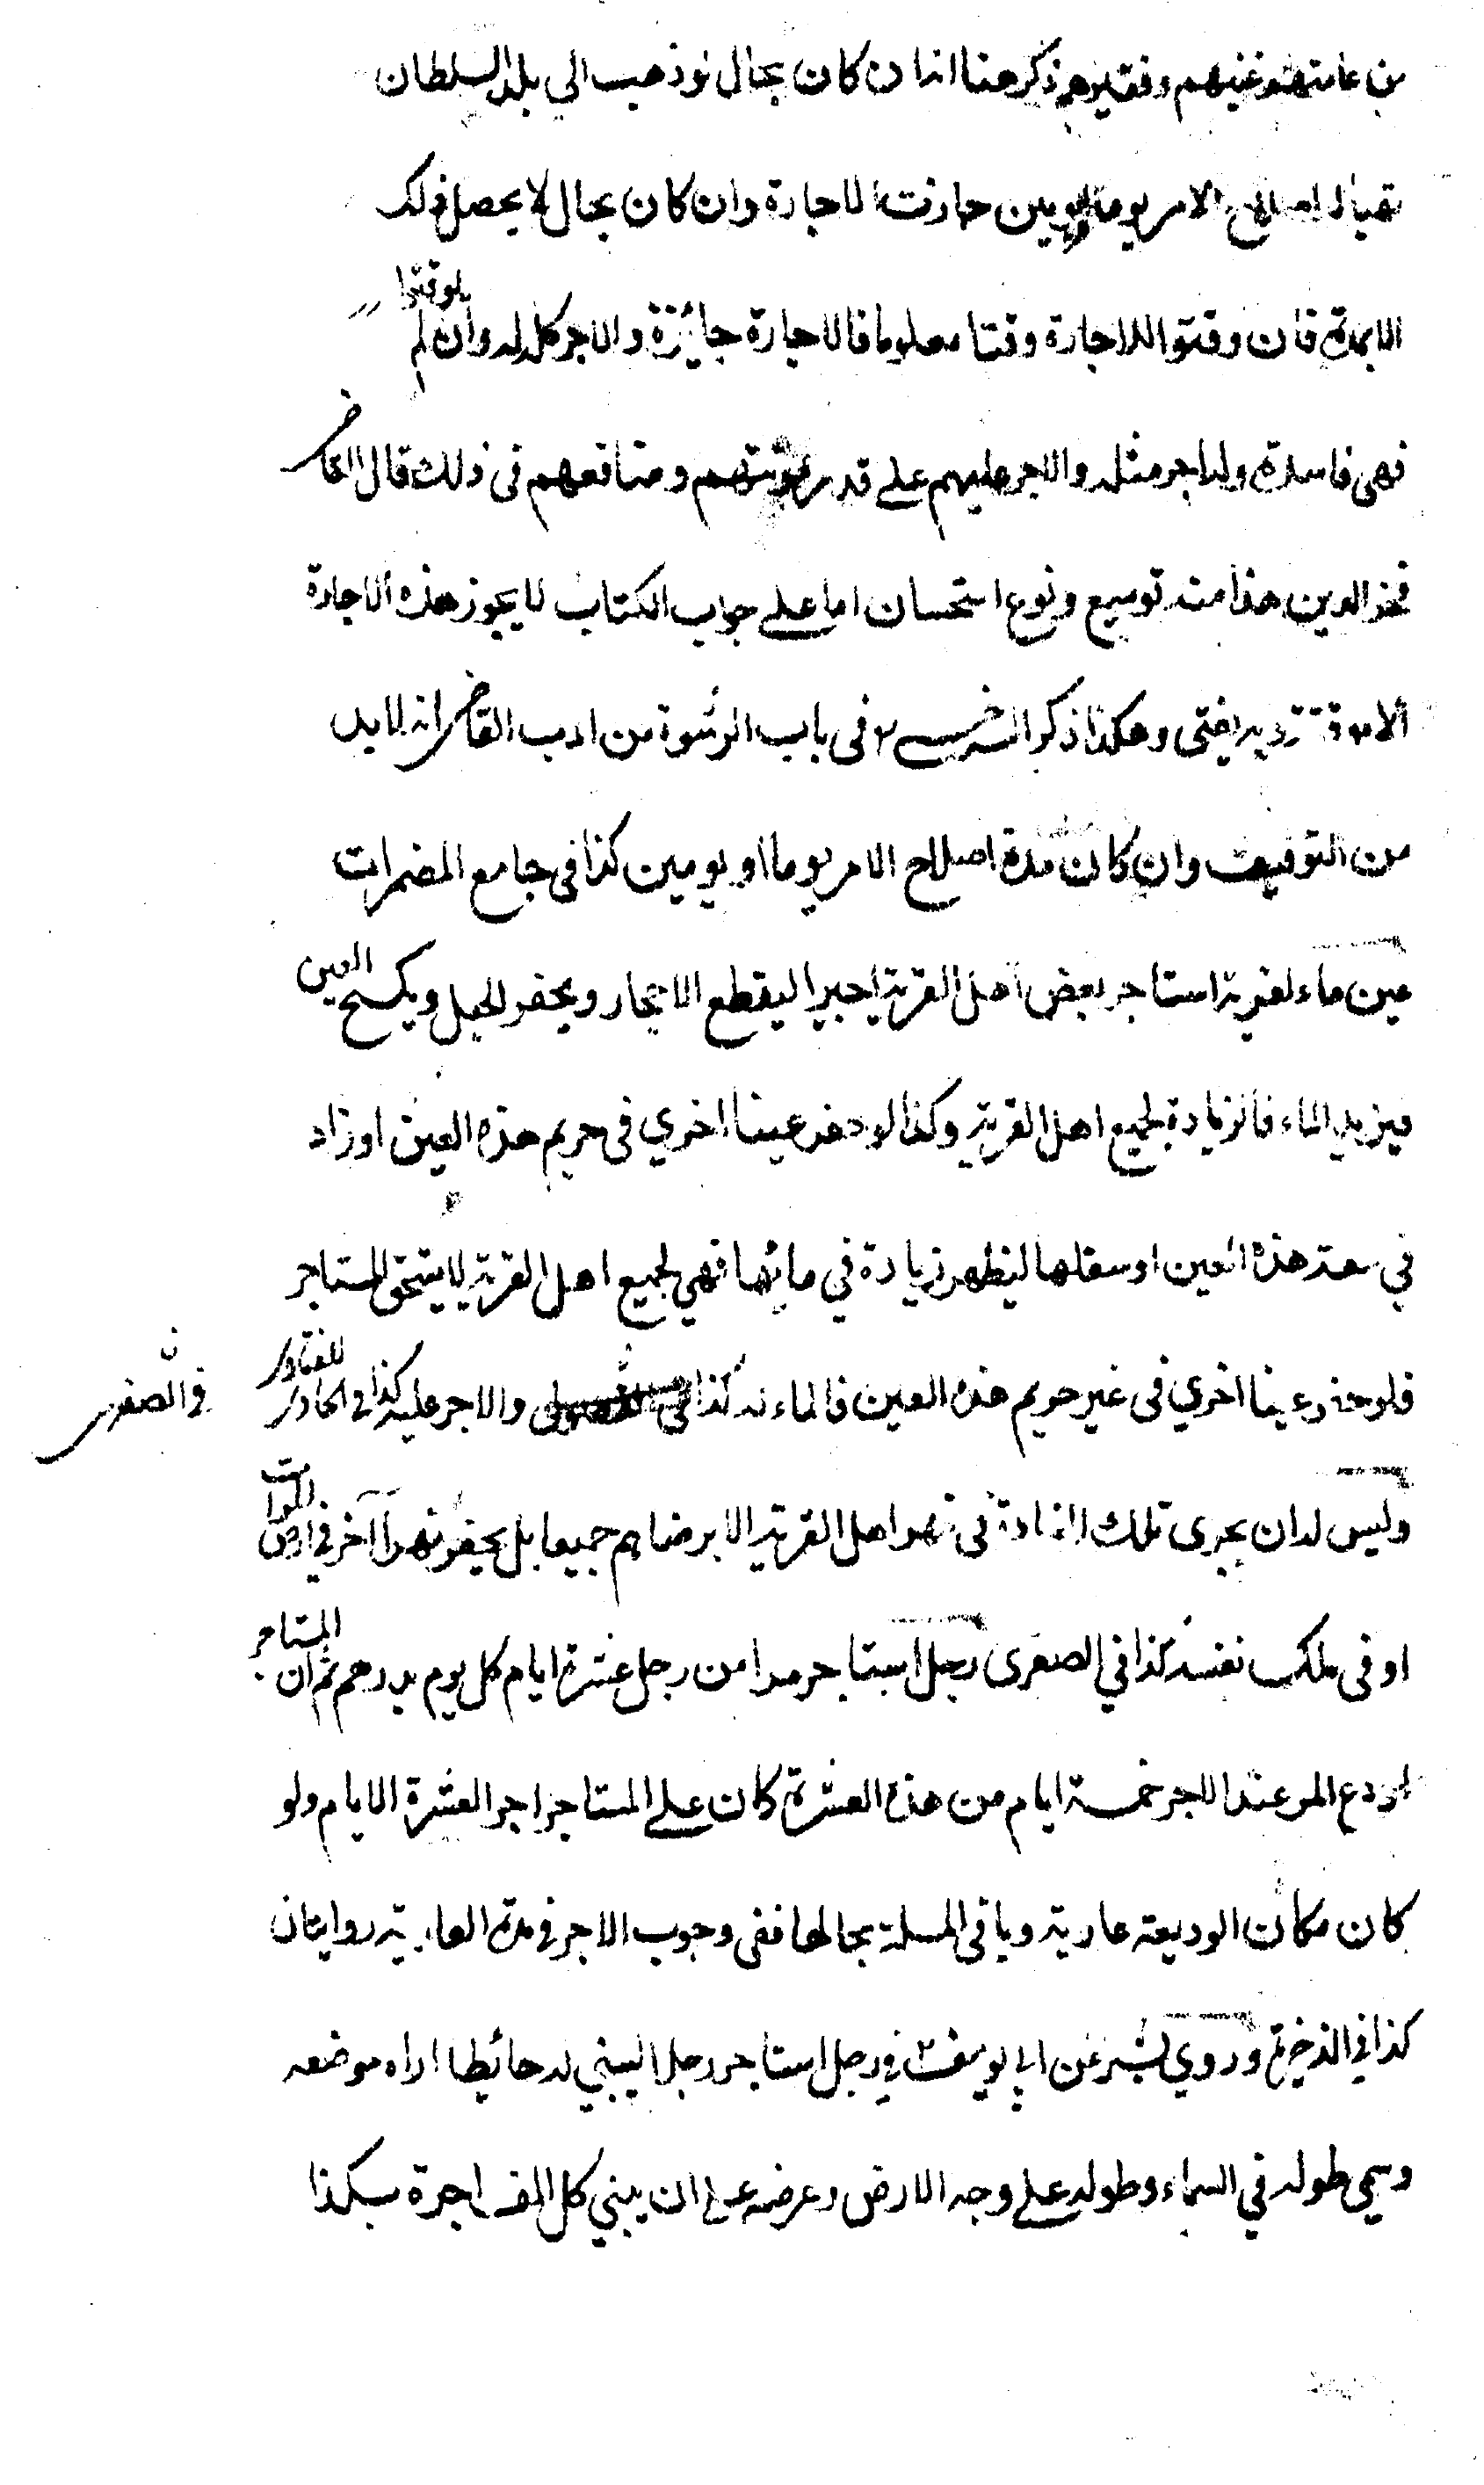 من عامتهم وغنيهم وفقيرهم ذكر هنا انه ان كان بحال لو ذهب الي بلد السلطان
تهيأ له اصلاح الامر يوما او يومين جازت الاجارة وان كان بحال لا يحصل ذلك
الا بمدة فان وقتوا للاجارة وقتا معلوما فالاجارة جائزة والاجر كله له وان لم يوقتوا
فهي فاسدة وله اجر مثله والاجر عليهم على قدر مؤنتهم ومنافعهم في ذلك قال القاضي
فخر الدين هذا منه توسيع ونوع استحسان اما على جواب الكتاب لا يجوز هذه الاجارة
الا موقتة وبه يفتى وهكذا ذكر السرخسي في باب الرشوة من ادب القاضي انه لا بد
من التوقيت وان كان مدة اصلاح الامر يوما او يومين كذا في جامع المضمرات
عين ماء لقرية استاجر بعض اهل القرية اجيرا ليقطع الاحجار ويحفر الجبل ويكسح العين
فيزيد الماء فالزيادة لجميع اهل القرية وكذا لو حفر عينا اخري في حريم هذه العين او زاد
في سعة هذه العين او سفلها ليظهر زيادة في مائها فهي لجميع اهل القرية لا يستحق المستاجر
فلو حفر عينا اخري في غير حريم هذه العين فالماء له كذا في والاجر عليه كذا في الحاوي للفتاوي
في الصغرى
وليس له ان يجرى تلك الزيادة في نهر اهل القرية الا برضاهم جميعا بل يحفر نهرا آخر في ارض الموات
او في ملك نفسه كذا في الصغرى رجل استاجر مرا من رجل عشرة ايام كل يوم بدرهم ثم ان المستاجر
اودع المر عند الاجر خمسة ايام من هذه العشرة كان على المستاجر اجر العشرة الايام ولو
كان مكان الوديعة عارية وباقي المسلة بحالها ففى وجوب الاجر في مدة العارية روايتان
كذا في الذخيرة وروي بشر عن ابي يوسف في رجل استاجر رجلا ليبني له حائطا اراه موضعه
وسمى طوله في السماء وطوله على وجه الارض وعرضه على ان يبني كل الف اجرة بكذا